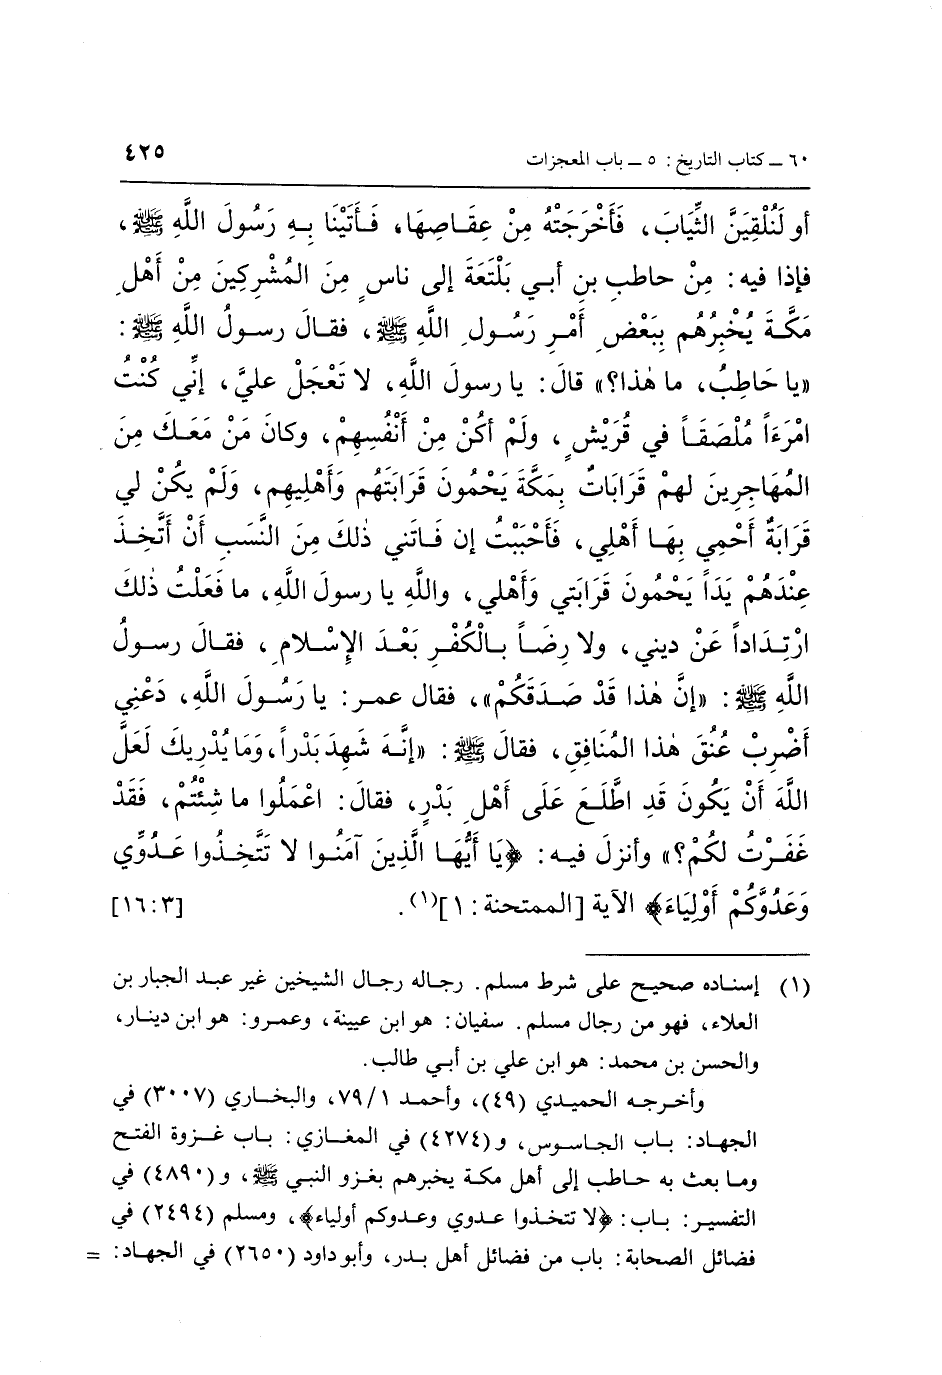 ٦٠ ـ كتاب التاريخ : ٥ ـ باب المعجزات ٤٢٥
أو لَنُلْقِيَنَّ الثِّيَابَ، فَأَخْرَجَتْهُ مِنْ عِقَـاصِهَا، فَـأَتَيْنَا بِـهِ رَسُولَ اللَّهِ ﷺ،
فإذا فيه: مِنْ حاطبِ بنِ أبي بَلْتَعَةَ إلى ناسٍ مِنَ المُشْرِكينَ مِنْ أَهْلِ
مَكَّـةَ يُخْبِرُهُم بِبَعْضِ أَمْرِ رَسُولِ اللَّهِ ﷺ، فقـالَ رسـولُ اللَّهِ ﷺ:
«يا حَاطِبُ، ما هٰذا؟» قالَ: يا رسولَ اللَّهِ، لا تَعْجَلْ عليَّ، إنِّي كُنْتُ
امْرَءَاً مُلْصَقَـاً في قُرَيْشٍ، ولَمْ أكُنْ مِنْ أَنْفُسِهِمْ، وكانَ مَنْ مَعَـكَ مِنَ
المُهَاجِرِينَ لهمْ قَرَابَاتٌ بِمَكَّةَ يَحْمُونَ قَرَابَتَهُم وَأَهْلِيهِم، وَلَمْ يكُنْ لي
قَرَابَةٌ أَحْمِي بِهَـا أَهْلِي، فَأَحْبَبْتُ إن فَـاتَني ذٰلكَ مِنَ النَّسَبِ أَنْ أَتَّخِـذَ
عِنْدَهُمْ يَدَاً يَحْمُونَ قَرَابَتي وَأَهْلي، واللَّهِ يا رسولَ اللَّهِ، ما فَعَلْتُ ذٰلكَ
ارْتِـدَاداً عَنْ ديني، ولا رِضَـاً بـالْكُفْـرِ بَعْـدَ الإِسْـلامِ، فقـالَ رسـولُ
اللَّهِ ﷺ: «إنَّ هٰذا قَدْ صَـدَقَكُمْ»، فقال عمـر: يا رَسُـولَ اللَّهِ، دَعْنِي
أَضْرِبْ عُنُقَ هٰذا المُنَافِقِ، فقالَ ﷺ: «إنَّـهُ شَهِدَ بَدْراً، وَمَا يُدْرِيكَ لَعَلَّ
اللَّهَ أَنْ يَكُونَ قَدِ اطَّلَـعَ عَلَى أَهْلِ بَدْرٍ، فقالَ: اعْمَلُوا ما شِئْتُمْ، فَقَدْ
غَفَـرْتُ لكُمْ؟» وأنزلَ فيـه: ﴿يَا أَيُّهَـا الَّذِينَ آمَنُـوا لا تَتَّخِـذُوا عَـدُوِّي
وَعَدُوَّكُمْ أَوْلِيَاءَ﴾ الآية [الممتحنة: ١](١). [٣: ١٦]
(١) إسنـاده صحيـح على شرط مسلم. رجـاله رجـال الشيخين غير عبـد الجبار بن
العلاء، فهو من رجال مسلم. سفيان: هو ابن عيينة، وعمـرو: هو ابن دينـار،
والحسن بن محمد: هو ابن علي بن أبي طالب.
وأخـرجـه الحميـدي (٤٩)، وأحمـد ٧٩/١، والبخـاري (٣٠٠٧) في
الجهـاد: بـاب الجـاسـوس، و(٤٢٧٤) في المغـازي: بـاب غـزوة الفتـح
ومـا بعث به حـاطب إلى أهل مكة يخبرهم بغزو النبي ﷺ، و(٤٨٩٠) في
التفسيـر: بـاب: ﴿لا تتخذوا عـدوي وعـدوكم أولياء﴾، ومسلم (٢٤٩٤) في
فضائل الصحابة: باب من فضائل أهل بـدر، وأبو داود (٢٦٥٠) في الجهـاد: =